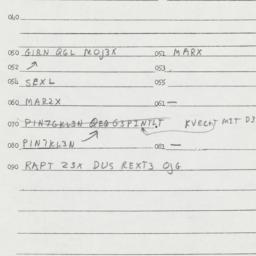 040
050 GIRN QGL MOJ3X 051 MARX
052 053
054 SEXL 055
060 MAR2X 061 —
070 PIN7GKL3N QEG G3PINTLT KVECHT MIT D3
080 PIN7KL3N 081 —
090 RAPT 23X DUS REXT3 OJG